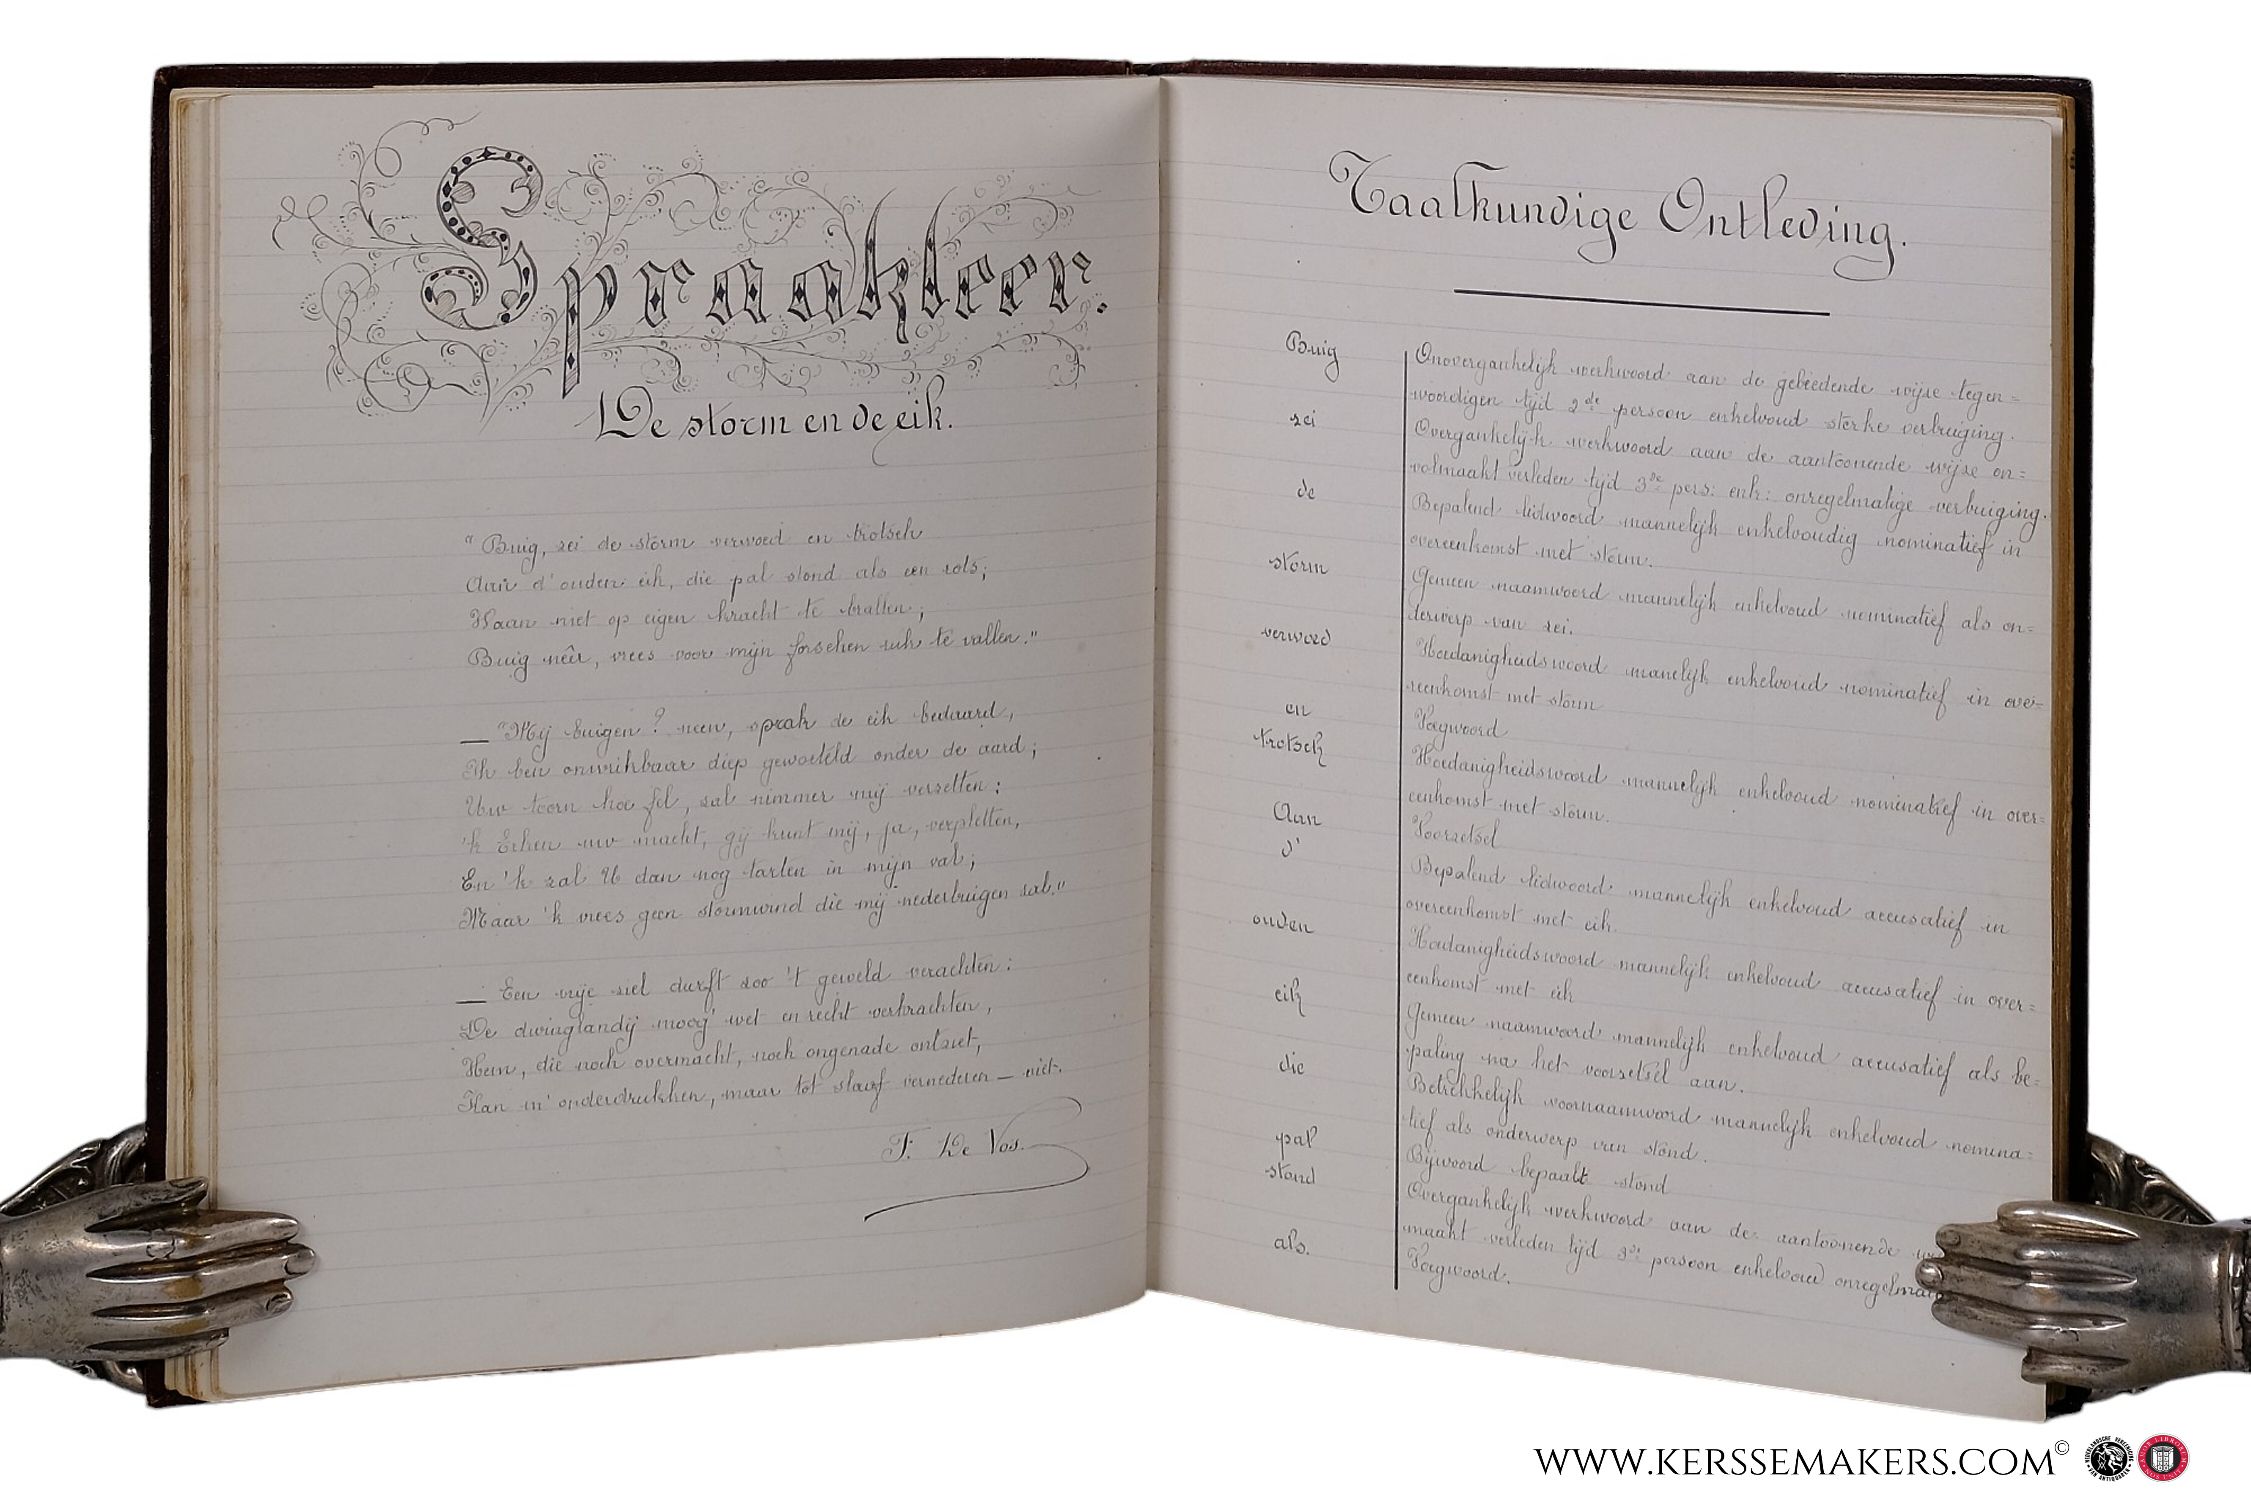 Spraakleer.
De storm en de eik.
" Buig, zei de storm verwoed en trotsch
Aan d'ouden eik, die pal stond als een rots;
Waan niet op eigen kracht te brallen;
Buig nêêr, vrees voor mijn forschen ruk te vallen."
— "Mij buigen? neen, sprak de eik bedaard,
Ik ben onwrikbaar diep geworteld onder de aard;
Uw toorn hoe fel, zal nimmer mij verzetten;
'k Erken uw macht, gij kunt mij, ja, verpletten,
En 'k zal U dan nog tarten in mijn val;
Maar 'k vrees geen stormwind die mij nederbuigen zal."
— Een vrije ziel durft zoo 't geweld verachten:
De dwinglandij moog' wet en recht verkrachten,
Hem, die noch overmacht, noch ongenade ontziet,
Kan m' onderdrukken, maar tot slaaf vernederen — niet.
F. De Vos.
Taalkundige Ontleding.
Buig Onovergankelijk werkwoord aan de gebiedende wijze tegen=
woordigen tijd 2de persoon enkelvoud sterke verbuiging.
zei Overgankelijk werkwoord aan de aantoonende wijze on=
volmaakt verleden tijd 3de pers: enk: onregelmatige verbuiging.
de Bepalend lidwoord mannelijk enkelvoudig nominatief in
overeenkomst met storm.
storm Gemeen naamwoord mannelijk enkelvoud nominatief als on=
derwerp van zei.
verwoed Hoedanigheidswoord manelijk enkelvoud nominatief in ove=
reenkomst met storm
en Voegwoord
trotsch Hoedanigheidswoord mannelijk enkelvoud nominatief in over=
eenkomst met storm.
Aan Voorzetsel
d' Bepalend lidwoord mannelijk enkelvoud accusatief in
overeenkomst met eik.
ouden Hoedanigheidswoord mannelijk enkelvoud accusatief in over=
eenkomst met eik
eik Gemeen naamwoord mannelijk enkelvoud accusatief als be=
paling na het voorzetsel aan.
die Betrekkelijk voornaamwoord mannelijk enkelvoud nomina=
tief als onderwerp van stond.
pal Bijwoord bepaalt stond
stond Overgankelijk werkwoord aan de aantoonende
maakt verleden tijd 3de persoon enkelvoud onregelmat
als. Voegwoord.
WWW.KERSSEMAKERS.COM©